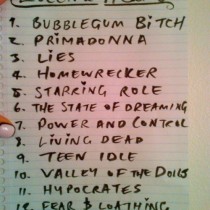 1. BUBBLEGUM BiTCH
2. PRiMADONNA
3. LiES
4. HOMEWRECKER
5. STARRiNG ROLE
6. THE STATE OF DREAMiNG
7. POWER AND CONTROL
8. LiViNG DEAD
9. TEEN iDLE
10. VALLEY OF THE DOLLS
11. HYPOCRATES
12. FEAR & LOATHiNG